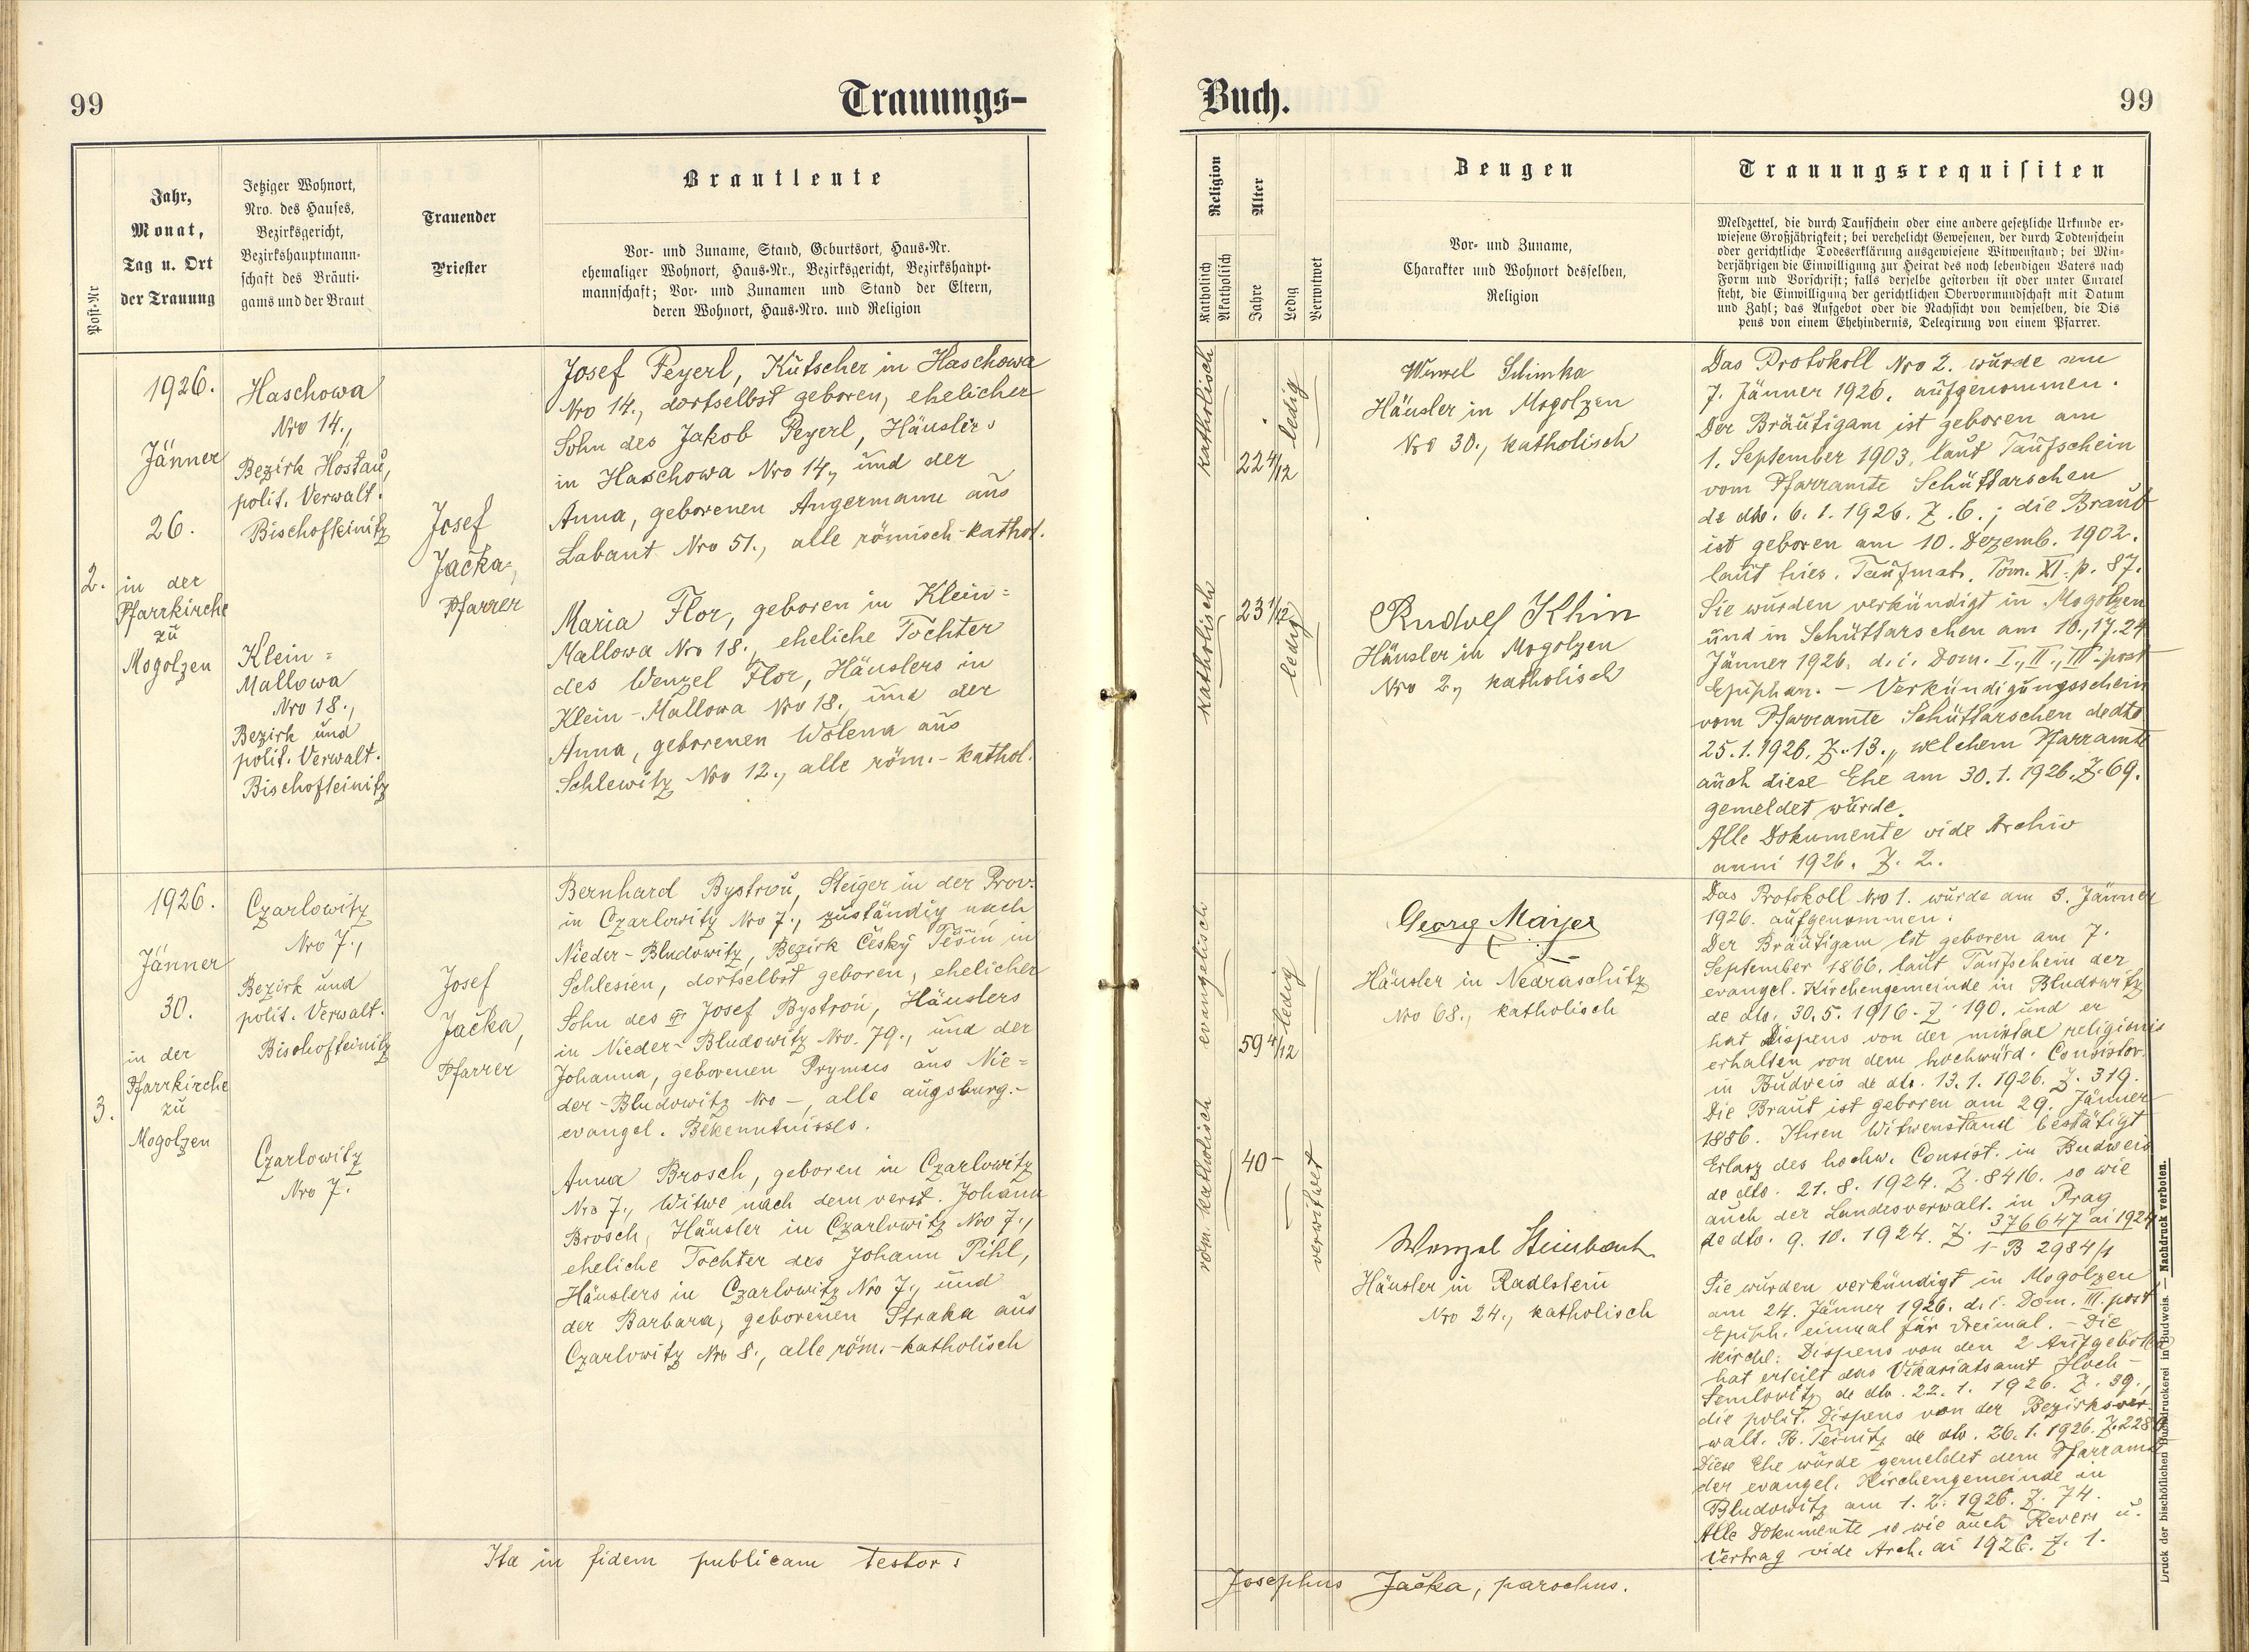 99
Trauungs-
Post-Nr
Jahr,
Monat,
Tag u. Ort
der Trauung
Jetziger Wohnort,
Nro. des Hauses,
Bezirksgericht,
Bezirkshauptmann-
schaft des Bräuti-
gams und der Braut
Trauender
Priester
Brautleute
Vor- und Zuname, Stand, Geburtsort, Haus-Nr.
ehemaliger Wohnort, Haus-Nr., Bezirksgericht, Bezirkshaupt-
mannschaft; Vor- und Zunamen und Stand der Eltern,
deren Wohnort, Haus-Nro. und Religion
2.
1926.
Jänner
26.
in der
Pfarrkirche
zu
Mogolzen
Haschowa
Nro 14.,
Bezirk Hostau,
polit. Verwalt.
Bischofteinitz
Klein-
Mallowa
Nro 18.,
Bezirk und
polit. Verwalt.
Bischofteinitz
Josef
Jačka,
Pfarrer
Josef Peyerl, Kutscher in Haschowa
Nro 14., dortselbst geboren, ehelicher
Sohn des Jakob Peyerl, Häuslers
in Haschowa Nro 14., und der
Anna, geborenen Angermann aus
Labant Nro 51., alle römisch-kathol.
Maria Flor, geboren in Klein-
Mallowa Nro 18., eheliche Tochter
des Wenzel Flor, Häuslers in
Klein-Mallowa Nro 18., und der
Anna, geborenen Wolena aus
Schlewitz Nro 12., alle röm.-kathol.
3.
1926.
Jänner
30.
in der
Pfarrkirche
zu
Mogolzen
Czarlowitz
Nro 7.,
Bezirk und
polit. Verwalt.
Bischofteinitz
Czarlowitz
Nro 7.
Josef
Jačka,
Pfarrer
Bernhard Bystroń, Steiger in der Prov.
in Czarlowitz Nro 7., zuständig nach
Nieder-Bludowitz, Bezirk Česky Těšin in
Schlesien, dortselbst geboren, ehelicher
Sohn des Josef Bystroń, Häuslers
in Nieder-Bludowitz Nro. 79., und der
Johanna, geborenen Prymus aus Nie-
der-Bludowitz Nro –, alle augsburg.-
evangel. Bekenntnisses.
Anna Brosch, geboren in Czarlowitz
Nro 7., Witwe nach dem verst. Johann
Brosch, Häusler in Czarlowitz Nro 7.,
eheliche Tochter des Johann Pihl,
Häuslers in Czarlowitz Nro 7., und
der Barbara, geborenen Straka aus
Czarlowitz Nro 8., alle röm.-katholisch
Ita in fidem publicam testor:
Buch.
99
Religion
Katholisch
Akatholisch
Alter
Jahre
Ledig
Verwitwet
Zeugen
Vor- und Zuname,
Charakter und Wohnort desselben,
Religion
Trauungsrequisiten
Meldzettel, die durch Taufschein oder eine andere gesetzliche Urkunde er-
wiesene Großjährigkeit; bei verehelicht Gewesenen, der durch Todtenschein
oder gerichtliche Todeserklärung ausgewiesene Witwenstand; bei Min-
derjährigen die Einwilligung zur Heirat des noch lebendigen Vaters nach
Form und Vorschrift; falls derselbe gestorben ist oder unter Curatel
steht, die Einwilligung der gerichtlichen Obervormundschaft mit Datum
und Zahl; das Aufgebot oder die Nachsicht von demselben, die Dis
pens von einem Ehehindernis, Delegirung von einem Pfarrer.
katholisch
22 4/12
ledig
katholisch
23 1/12
ledig
Häusler in Mogolzen
Nro 30., katholisch
Rudolf Khin
Häusler in Mogolzen
Nro 2., katholisch
Das Protokoll Nro 2. wurde am
7. Jänner 1926. aufgenommen.
Der Bräutigam ist geboren am
1. September 1903. laut Taufschein
vom Pfarramte Schüttarschen
de dto. 6. 1. 1926. Z. 6.; die Braut
ist geboren am 10. Dezemb. 1902.
laut hies. Taufmat. Tom. XI. p. 87.
Sie wurden verkündigt in Mogolzen
und in Schüttarschen am 10., 17. 24
Jänner 1926. d. i. Dom. I., II., III. post
Epiphan. – Verkündigungsschein
vom Pfarramte Schüttarschen de dto
25. 1. 1926. Z. 13., welchem Pfarramte
auch diese Ehe am 30. 1. 1926. Z. 69.
gemeldet wurde.
Alle Dokumente vide Archiv
anni 1926. Z. 2.
evangelisch
59 4/12
ledig
röm. katholisch
40 –
verwitwet
Georg Mayer
Häusler in Nedraschitz
Nro 68., katholisch
Wenzel Steinbach
Häusler in Radlstein
Nro 24., katholisch
Das Protokoll Nro 1. wurde am 3. Jänner
1926. aufgenommen.
Der Bräutigam ist geboren am 7.
September 1866. laut Taufschein der
evangel. Kirchengemeinde in Bludowitz
de dto. 30. 5. 1916. Z. 190. und er
hat Dispens von der mixtae religionis
erhalten von dem hochwürd. Consistor.
in Budweis de dto. 13. 1. 1926. Z. 319.
Die Braut ist geboren am 29. Jänner
1886. Ihren Witwenstand bestätigt
Erlasz des hochw. Consist. in Budweis
de dto. 21. 8. 1924. Z. 8416. so wie
auch der Landesverwalt. in Prag
de dto. 9. 10. 1924. Z. 376647 ai 1924
1-B 2984/1
Sie wurden verkündigt in Mogolzen
am 24. Jänner 1926. d. i. Dom. III. post
Epiph. einmal für dreimal. – Die
kirchl. Dispens von den 2 Aufgeboten
hat erteilt das Vikariatsamt Hoch-
Semlowitz de dto. 22. 1. 1926. Z. 39.,
die polit. Dispens von der Bezirksver-
walt. B. Teinitz de dto. 26. 1. 1926.
Diese Ehe wurde gemeldet dem Pfarramte
der evangel. Kirchengemeinde in
Bludowitz am 1. 2. 1926. Z. 74.
Alle Dokumente so wie auch Revers u.
Vertrag vide Arch. ai 1926. Z. 1.
Josephus Jačka, parochus.
Druck der bischöflichen Buchdruckerei in Budweis. — Nachdruck verboten.